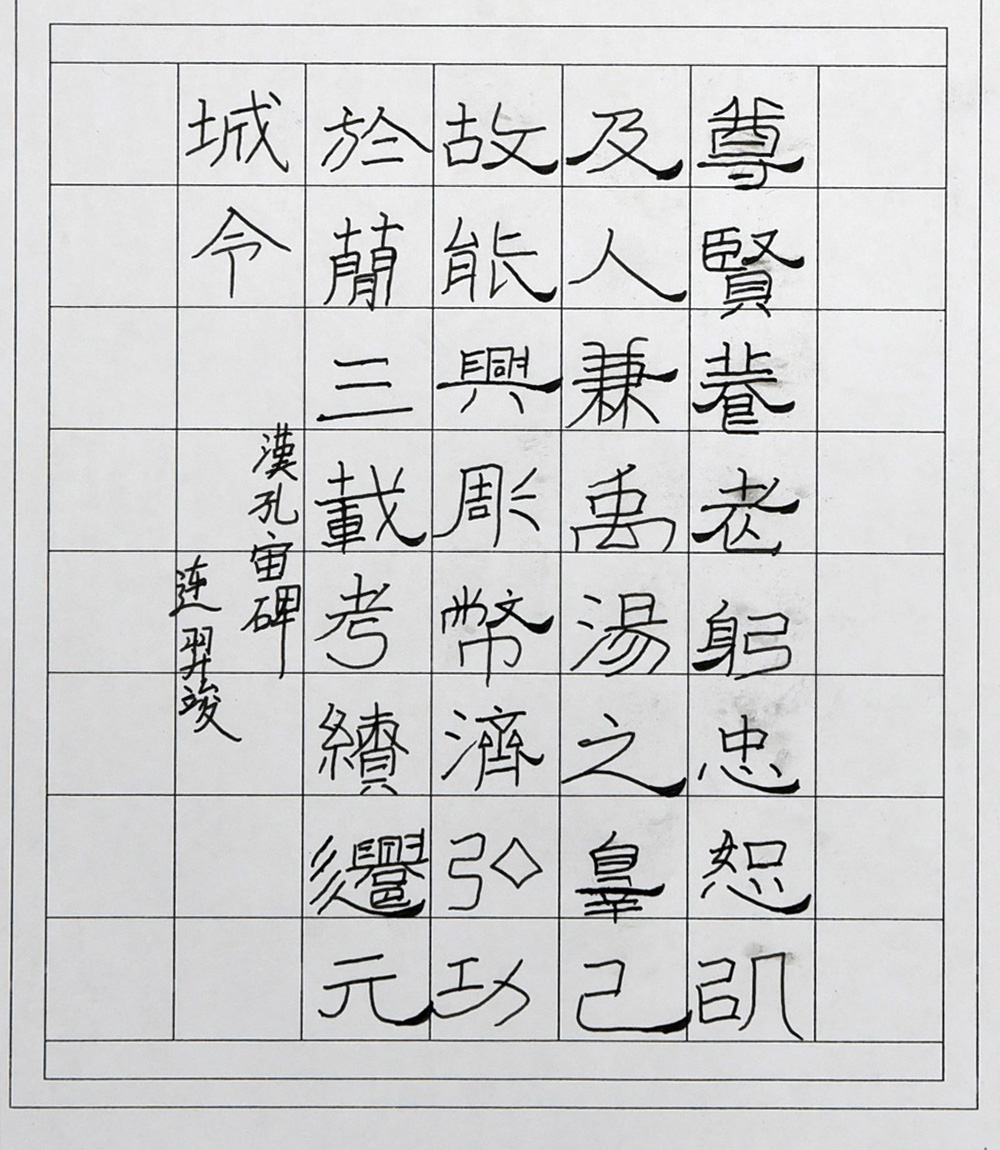 尊賢養老躬忠恕以
及人兼禹湯之辠己
故能興彫幣濟弘功
於蕑三載考績遷元
城令
漢孔宙碑
连羿竣